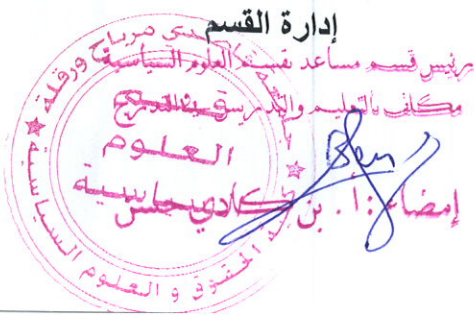 إدارة القسم
رئيس قسم مساعد بقسم العلوم السياسية
مكلف بالتعليم والتدريس في التدرج
قسم
العلوم
السياسية
إمضاء: أ. بن كادي حسن
مرباح ورقلة
الحقوق و العلوم السياسية